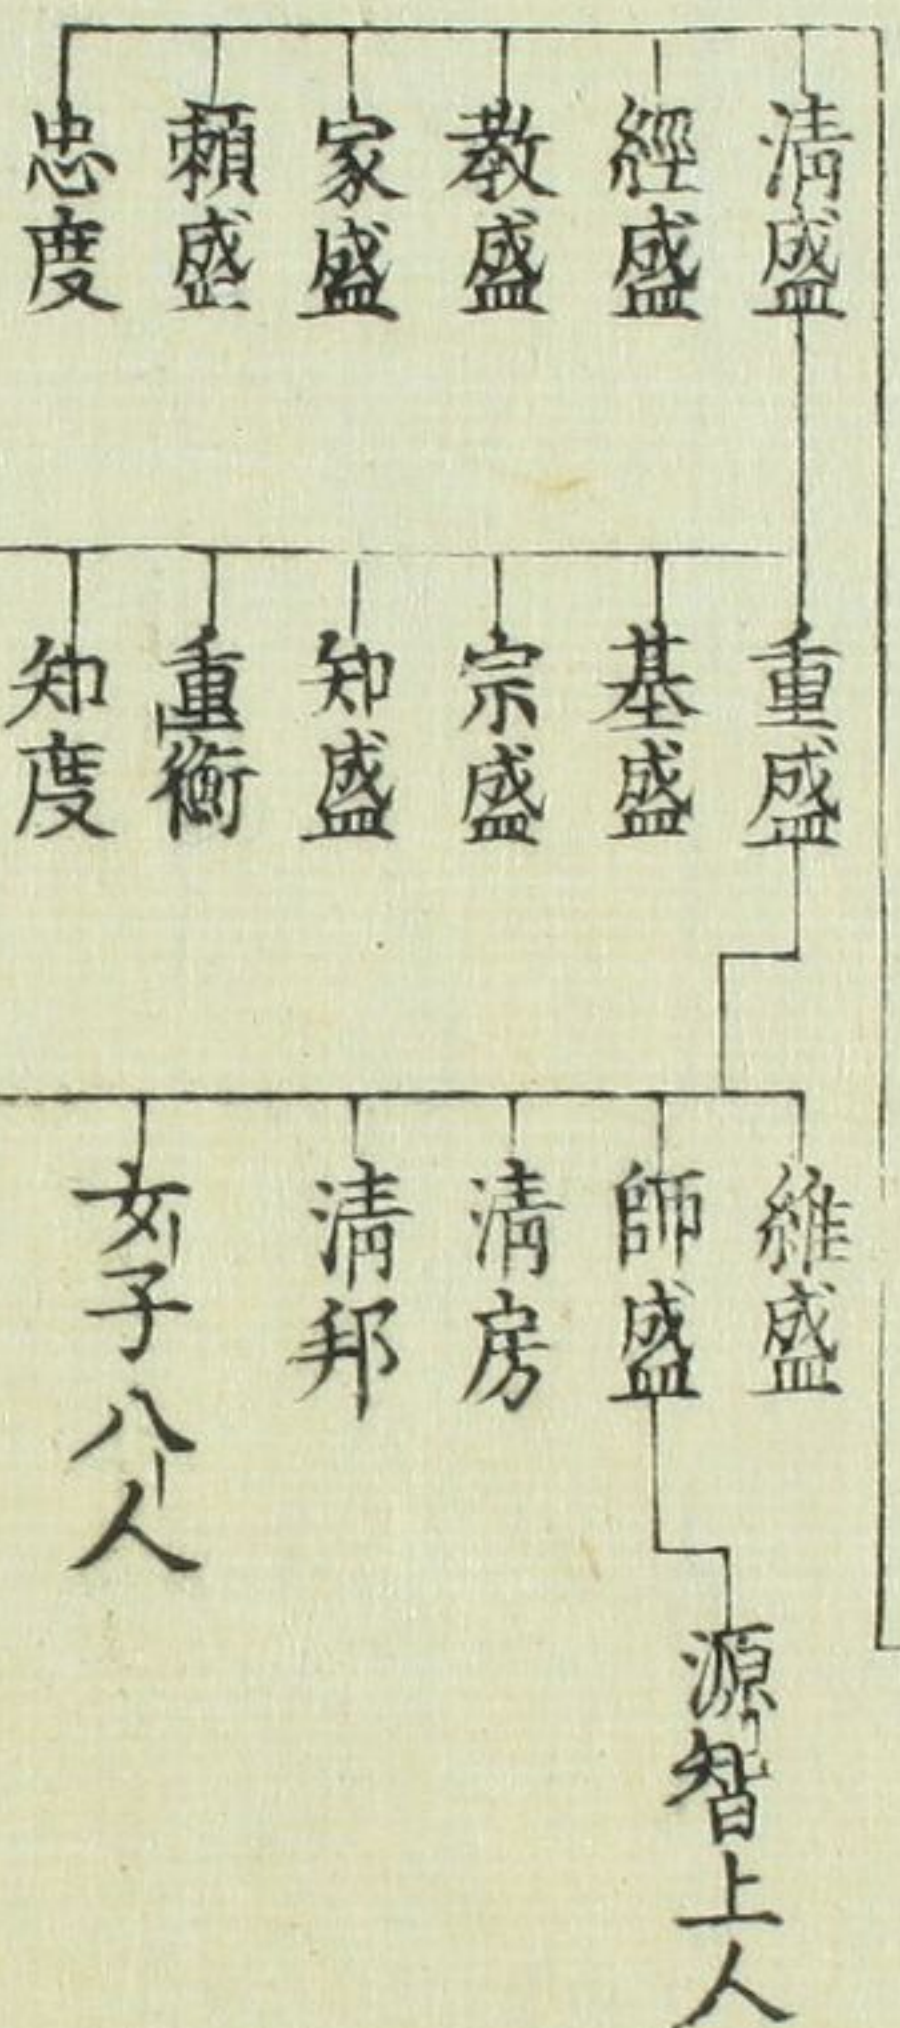 清盛
經盛
教盛
家盛
頼盛
忠度
重盛
基盛
宗盛
知盛
重衡
知度
維盛
師盛
清房
清邦
女子八人
源智上人